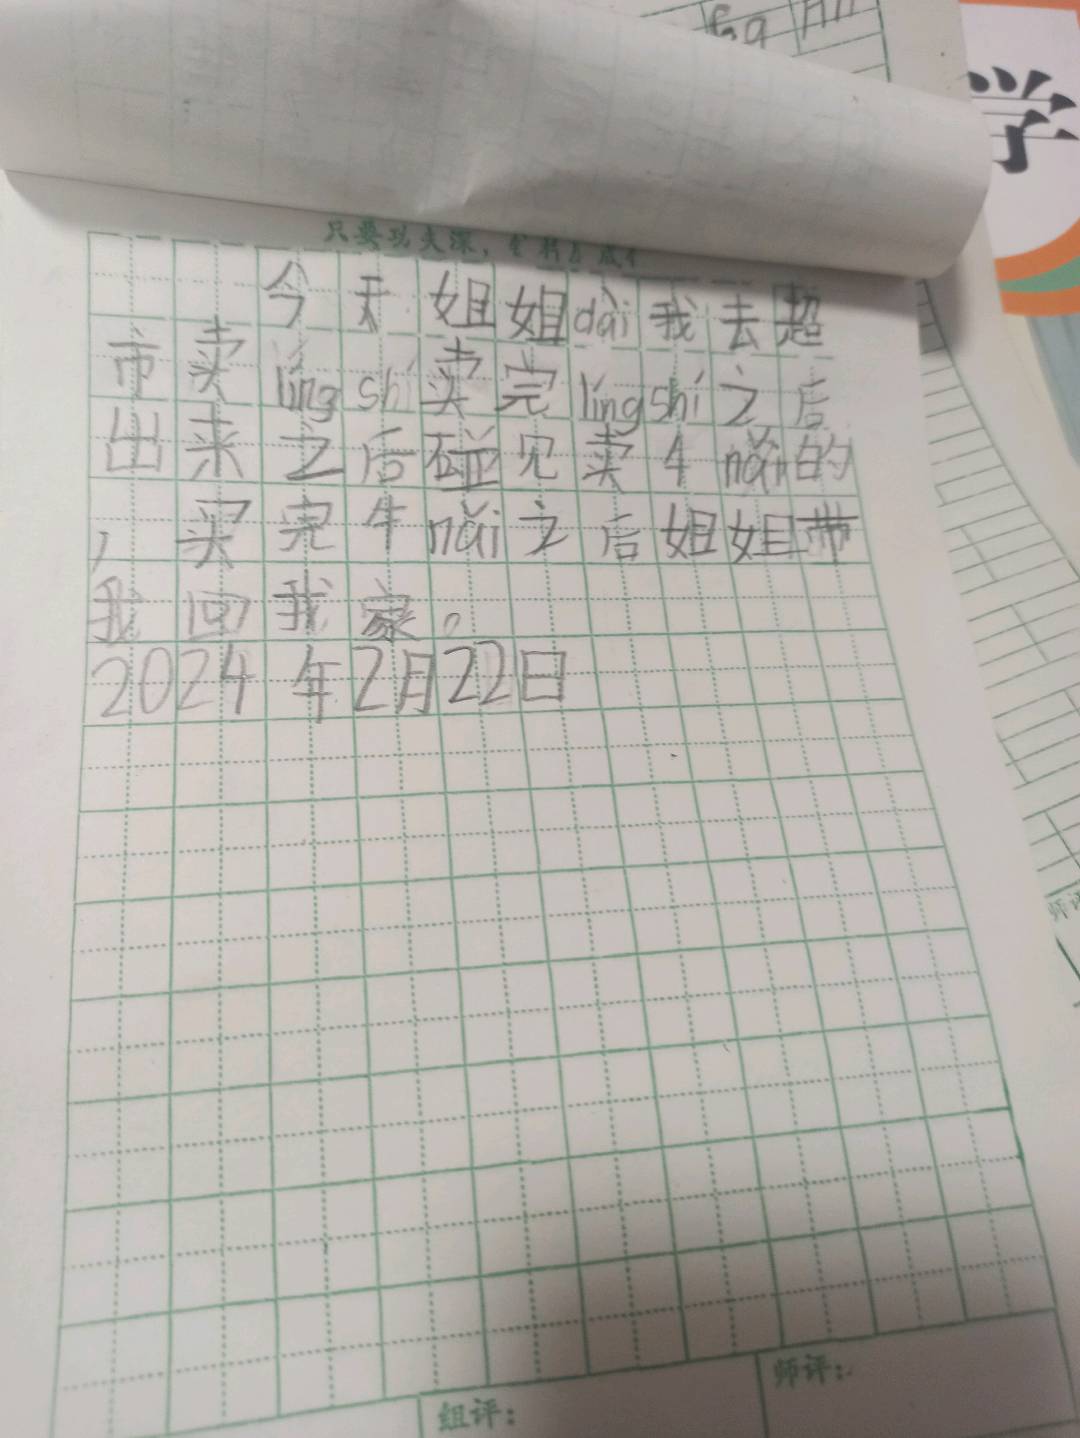 学
只要功夫深，
今天姐姐dài我去超
市卖líng shí卖完líng shí之后
出来之后碰见卖牛nǎi的
，买完牛nǎi之后姐姐带
我回我家。
2024年2月22日
师评:
组评: